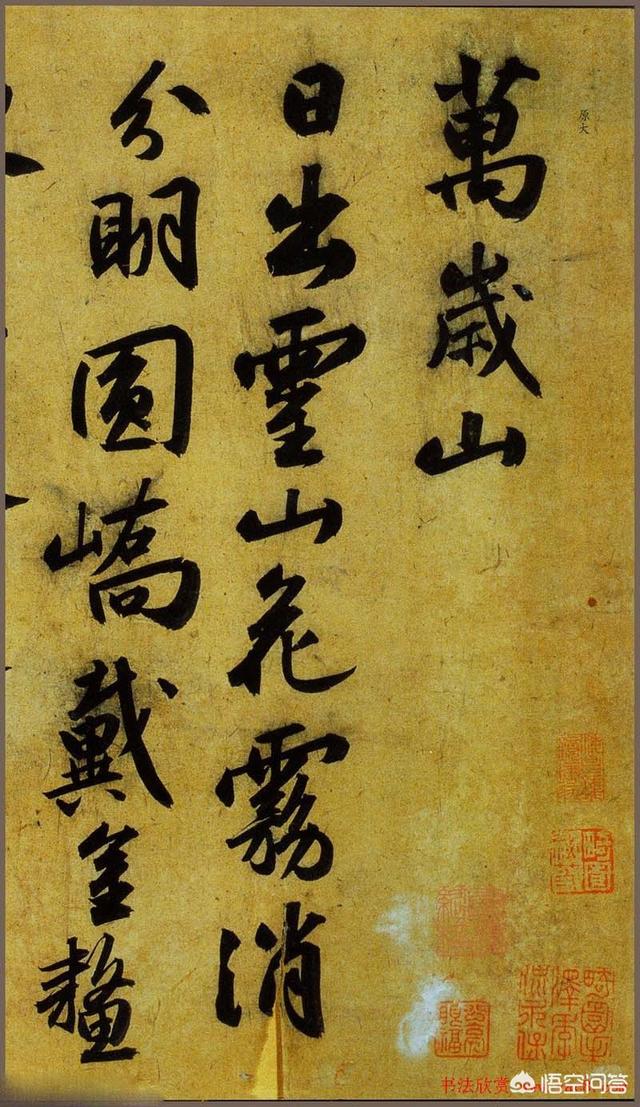 原大
萬歲山
日出靈山花霧消
分明圓嶠戴金鼇
书法欣赏
悟空问答